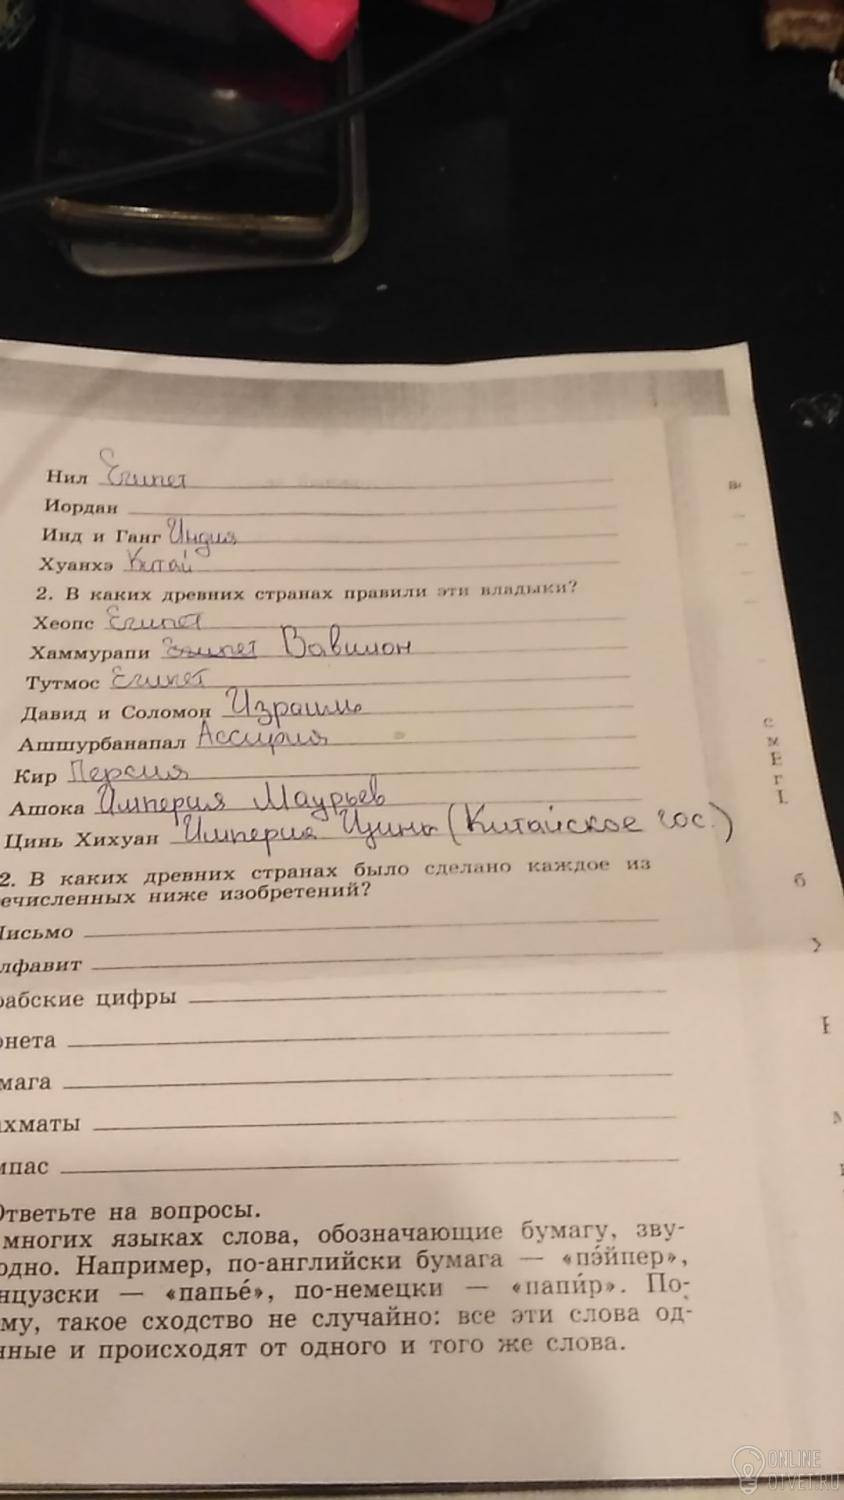 Нил Египет
Иордан
Инд и Ганг Индия
Хуанхэ Китай
2. В каких древних странах правили эти владыки?
Хеопс Египет
Хаммурапи Египет Вавилон
Тутмос Египет
Давид и Соломон Израиль
Ашшурбанапал Ассирия
Кир Персия
Ашока Империя Маурьев
Цинь Хихуан Империя Цинь (Китайское гос.)
2. В каких древних странах было сделано каждое из
ечисленных ниже изобретений?
Письмо
лфавит
рабские цифры
онета
мага
хматы
мпас
Ответьте на вопросы.
многих языках слова, обозначающие бумагу, зву-
одно. Например, по-английски бумага — «пэ́йпер»,
нцузски — «папье́», по-немецки — «папи́р». По-
му, такое сходство не случайно: все эти слова од-
нные и происходят от одного и того же слова.
ONLINE
OTVET.RU